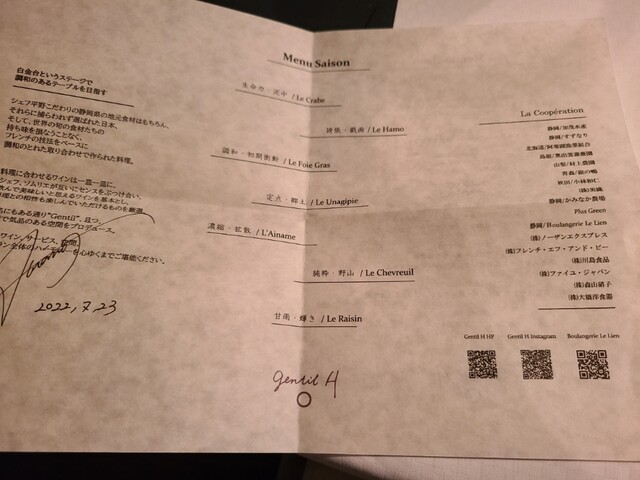 白金台というステージで
調和のあるテーブルを目指す
シェフ平野こだわりの静岡県の地元食材はもちろん、
それらに捕らわれず選ばれた日本、
そして、世界の旬の食材たちの
持ち味を損なうことなく、
フレンチの技法をベースに
調和のとれた取り合わせで作られた料理。
料理に合わせるワインは一皿一皿に、
シェフ、ソムリエが互いにセンスをぶつけ合い、
飲んで美味しいと思えるワインを基本とし、
料理との相性も楽しんでいただけるものを厳選
にもある通り"Gentil"、且つ、
気品のある空間をプロデュース。
ワイン、サービス、空間、
心ゆくまでご堪能ください。
2022,7,23
Menu Saison
生命力・ / Le Crabe
・戯曲 / Le Hamo
調和・初期衝動 / Le Foie Gras
定点・郷土 / Le Unagipie
濃縮・拡散 / L'Ainame
純粋・野山 / Le Chevreuil
甘雨・輝き / Le Raisin
gentil H
La Coopération
静岡/加茂水産
静岡/すずなり
北海道/
島根/
山梨/村上農園
青森/銀の鴨
秋田/小林和仁
(株)
静岡/かみなか農場
Plus Green
静岡/Boulangerie Le Lien
(株)ノーザンエクスプレス
(株)フレンチ・エフ・アンド・ビー
(株)川島食品
(株)ファイユ・ジャパン
(株)森山硝子
(株)大橋洋食器
Gentil H HP Gentil H Instagram Boulangerie Le Lien